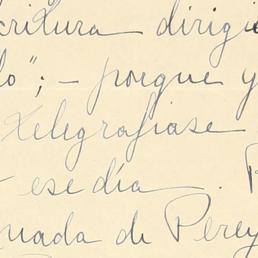 critura dirigi
lo"; – porque y
telegrafiase
ese día . P
nada de Perey